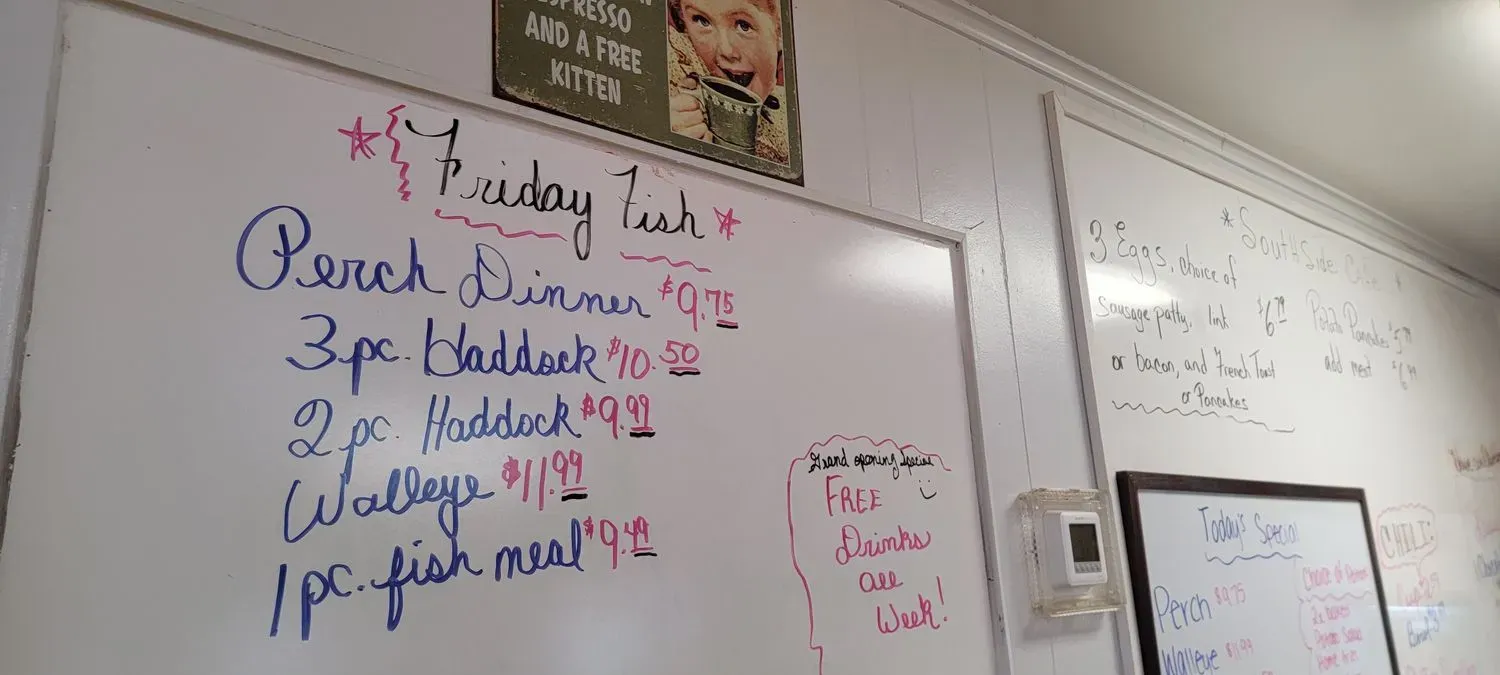 ESPRESSO
AND A FREE
KITTEN
Friday Fish
Perch Dinner $9.75
3 pc. Haddock $10.50
2 pc. Haddock $9.99
Walleye $11.99
1 pc. fish meal $9.49
Grand opening special
FREE
Drinks
all
Week!
* SouthSide Cafe *
3 Eggs, choice of
sausage patty, link $6.79
or bacon, and French Toast
or Pancakes
Potato Pancakes $5.79
add meat $6.99
Today's Special
Perch $9.75
Walleye $11.99
Choice of Potatoes
2x baked
Potato Salad
Home fries
CHILI:
Cup
Bowl